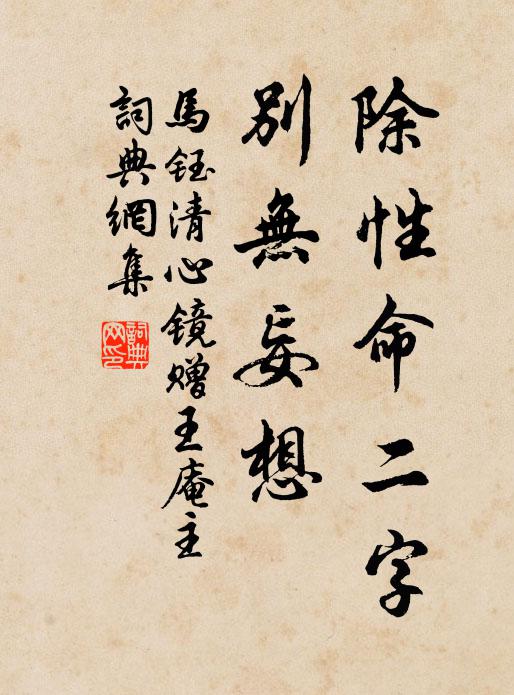 除性命二字
別無妄想
馬鈺清心镜赠王庵主
詞典網集
詞典
网印